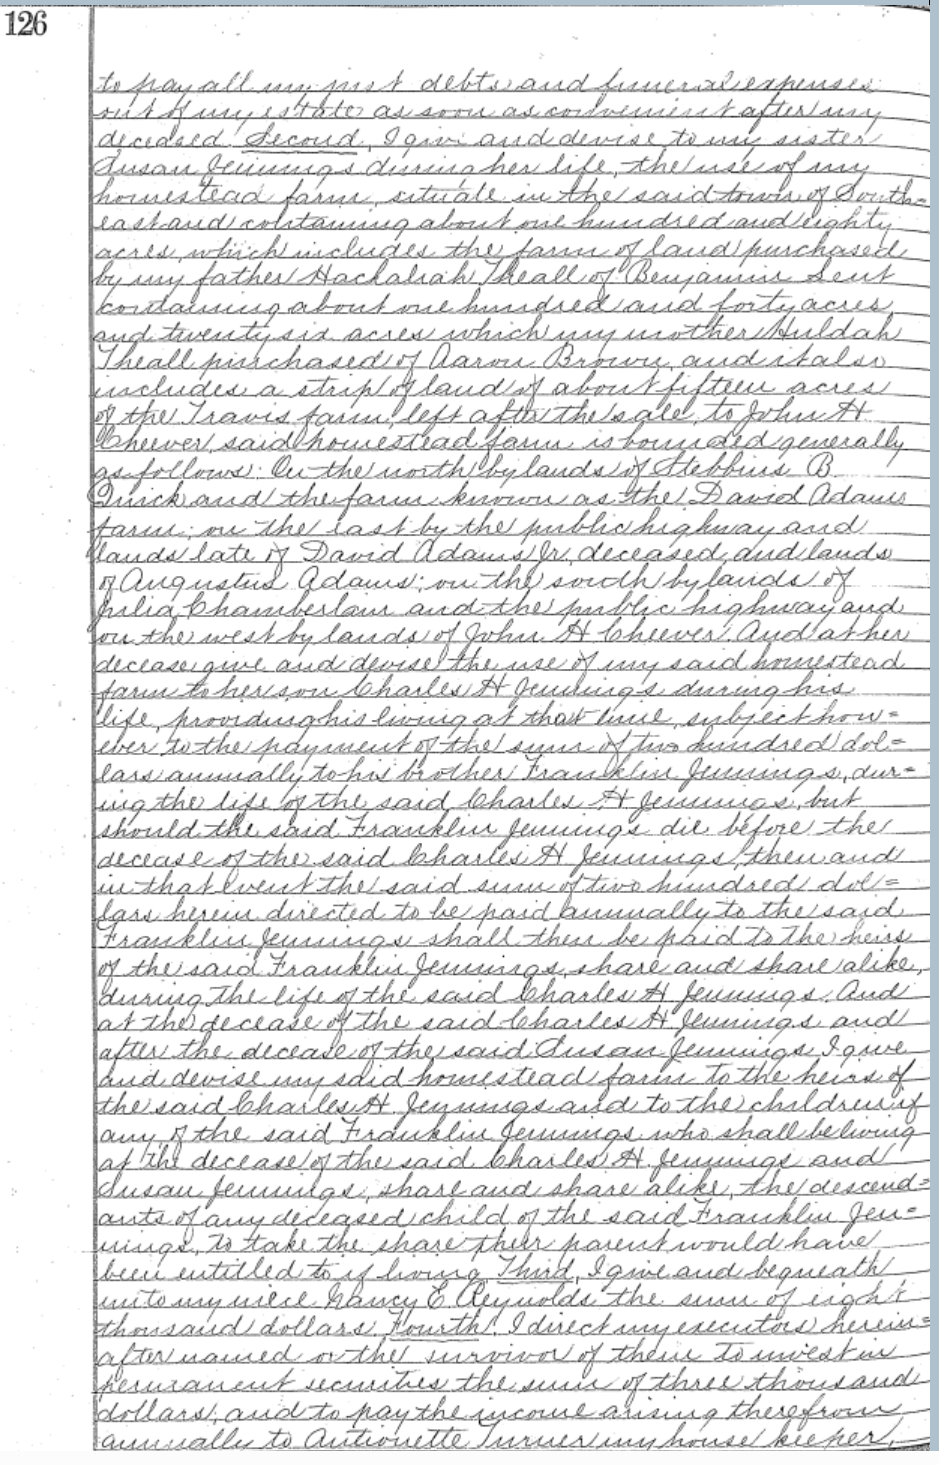 126
to pay all my just debts and funeral expenses
out of my estate as soon as convenient after my
deceased. Second, I give and devise to my sister
Susan Jennings during her life, the use of my
homestead farm, situate in the said town of South=
east and containing about one hundred and eighty
acres, which includes the farm of land purchased
by my father Hachaliah Theall of Benjamin Sent
containing about one hundred and forty acres
and twenty six acres which my mother Huldah
Theall purchased of Aaron Brown, and it also
includes a strip of land of about fifteen acres
of the Travis farm, left after the sale, to John H
Cheever, said homestead farm is bounded generally
as follows: On the north by lands of Stebbins B
Quick and the farm known as the David Adams
farm; on the east by the public highway and
lands late of David Adams Jr, deceased, and lands
of Augustus Adams; on the south by lands of
Julia Chamberlain and the public highway and
on the west by lands of John H Cheever. And at her
decease give and devise the use of my said homestead
farm to her son Charles H Jennings during his
life, providing his living at that time, subject how=
ever to the payment of the sum of two hundred dol=
lars annually to his brother Franklin Jennings, dur=
ing the life of the said Charles H Jennings, but
should the said Franklin Jennings die before the
decease of the said Charles H Jennings, then and
in that event the said sum of two hundred dol=
lars herein directed to be paid annually to the said
Franklin Jennings shall then be paid to the heirs
of the said Franklin Jennings, share and share alike,
during the life of the said Charles H Jennings. And
at the decease of the said Charles H Jennings and
after the decease of the said Susan Jennings I give
and devise my said homestead farm to the heirs of
the said Charles H. Jennings and to the children if
any of the said Franklin Jennings who shall be living
at the decease of the said Charles H Jennings and
Susan Jennings, share and share alike, the descend=
ants of any deceased child of the said Franklin Jen=
nings, to take the share their parent would have
been entitled to if living. Third, I give and bequeath
unto my niece Nancy E. Reynolds the sum of eight
thousand dollars. Fourth. I direct my executors herein=
after named or the survivor of them to invest in
permanent securities the sum of three thousand
dollars, and to pay the income arising therefrom
annually to Antionette Turner my house keeper,